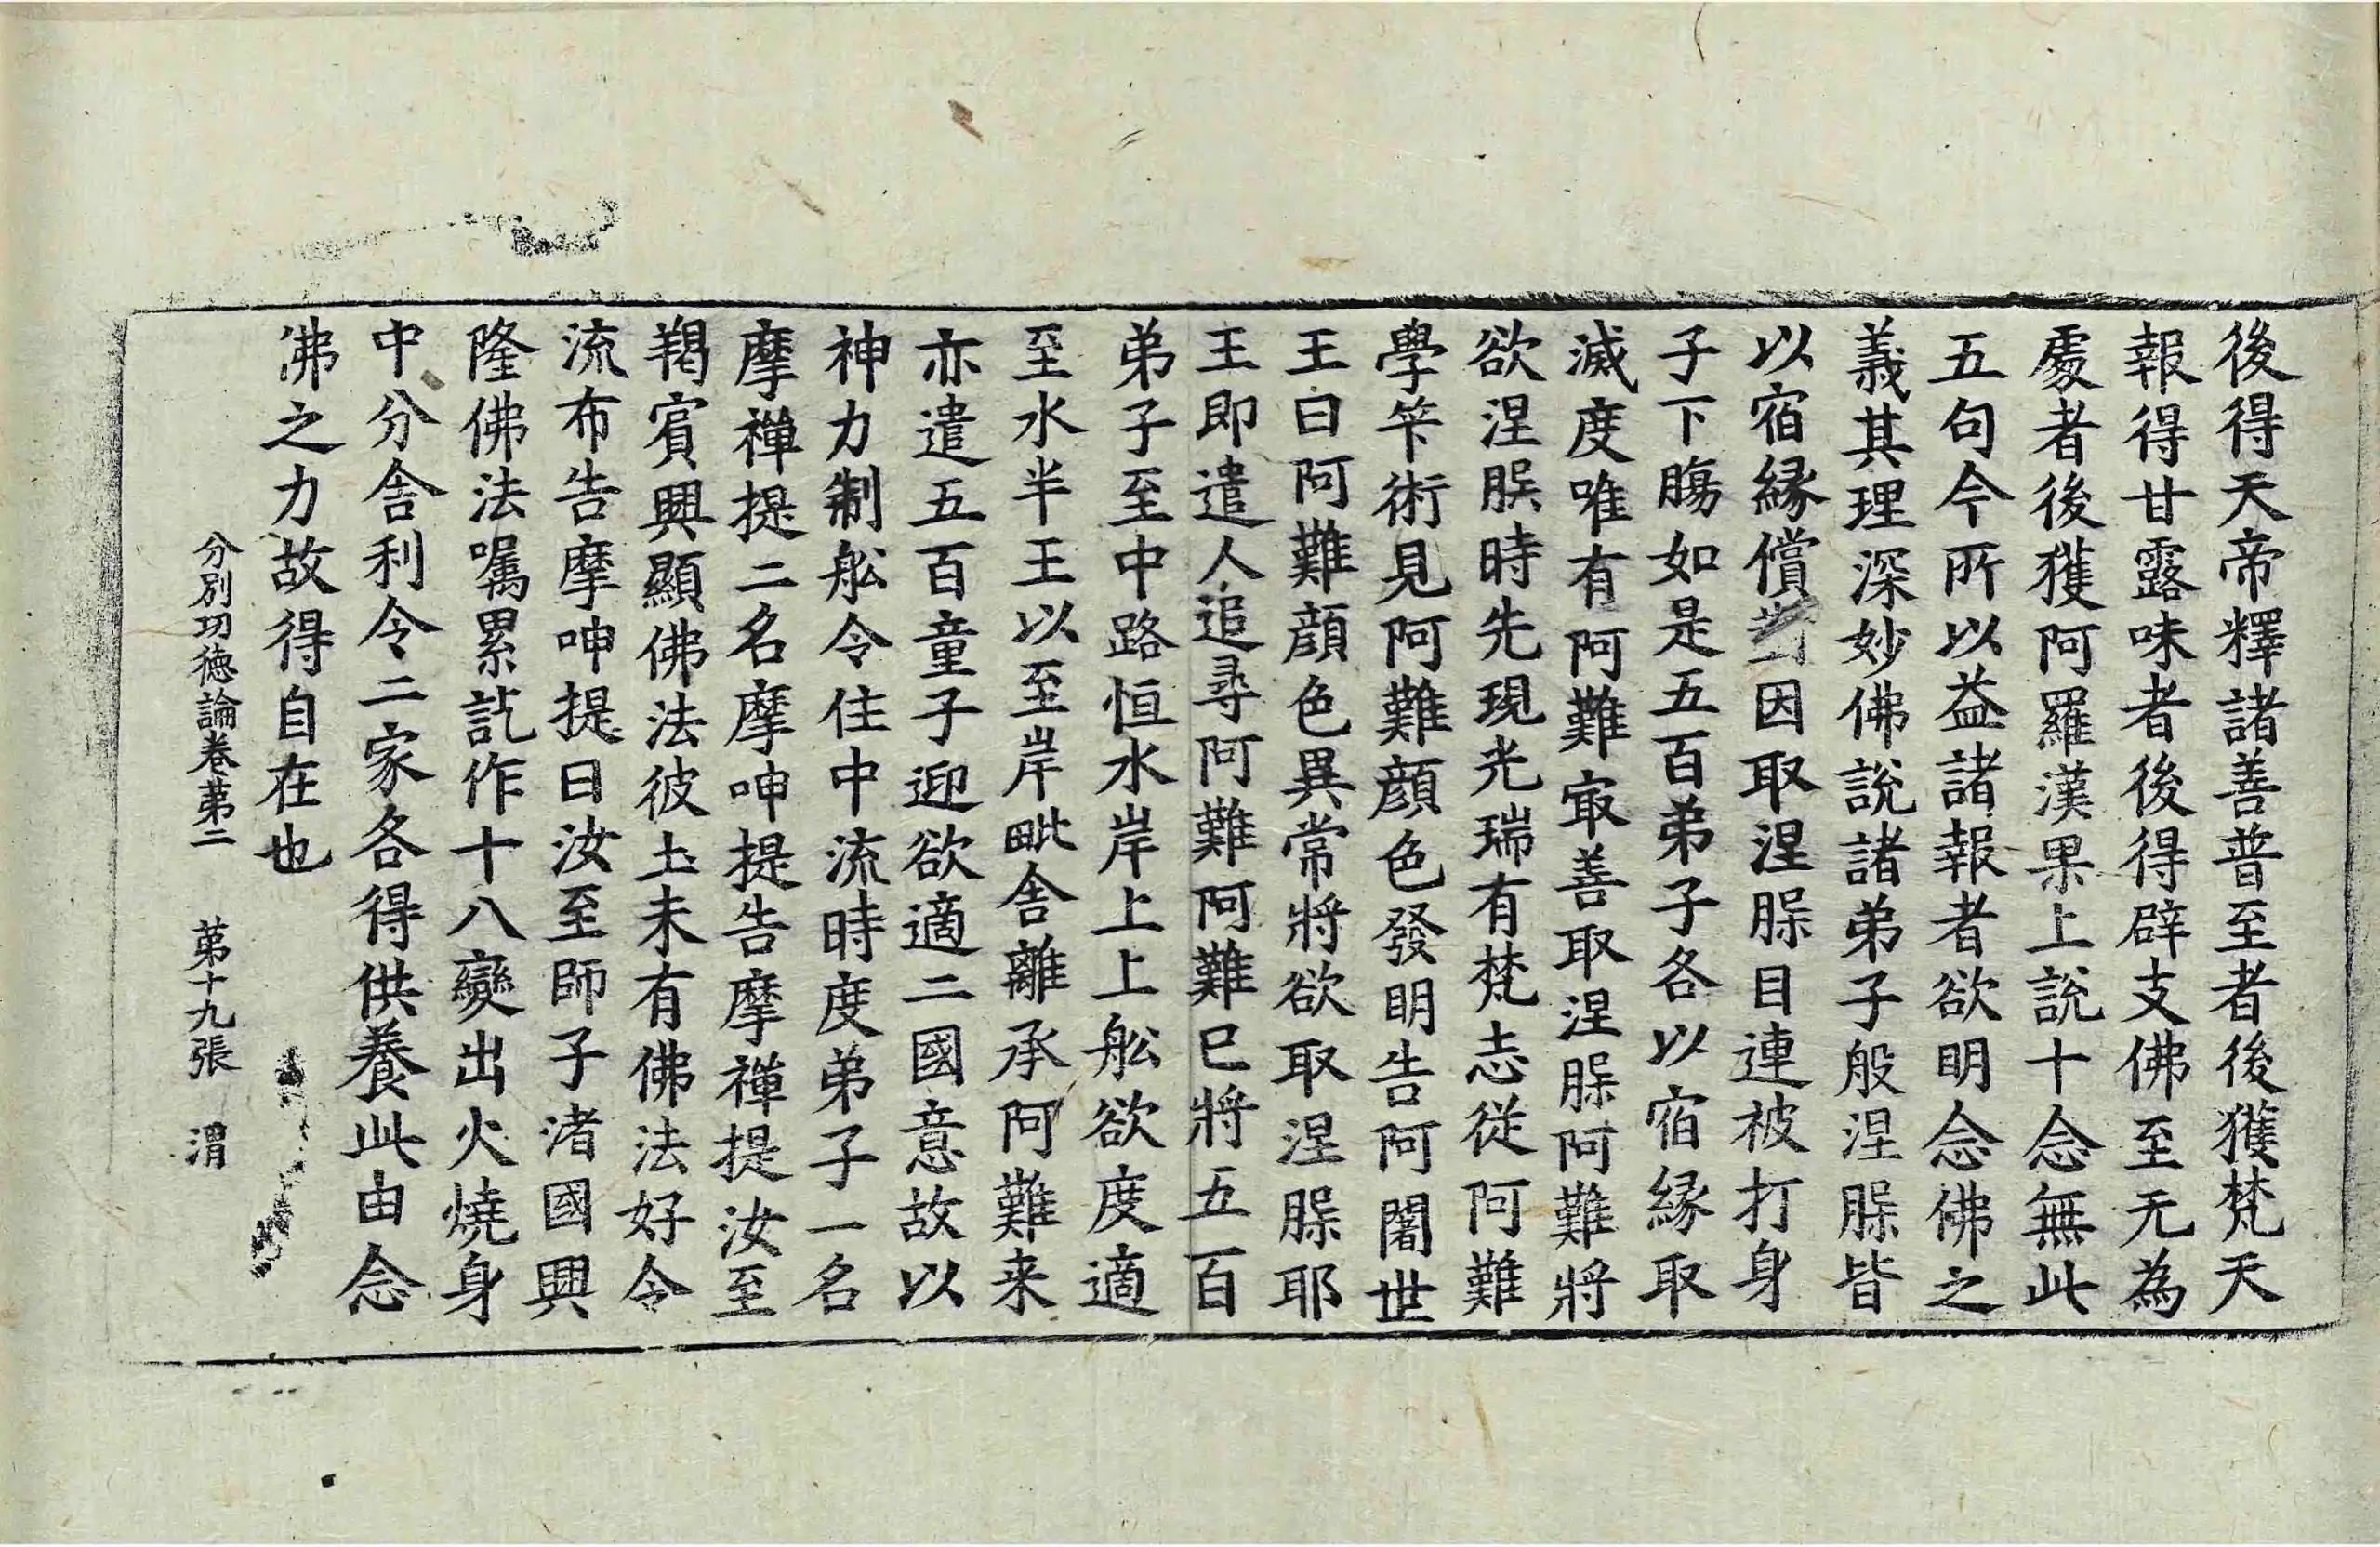 後得天帝釋諸善普至者後獲梵天
報得甘露味者後得辟支佛至无為
處者後獲阿羅漢果上說十念無此
五句今所以益諸報者欲明念佛之
義其理深妙佛說諸弟子般涅槃皆
以宿緣償對因取涅槃目連被打身
子下腸如是五百弟子各以宿緣取
滅度唯有阿難㝡善取涅槃阿難將
欲涅槃時先現光瑞有梵志從阿難
學笇術見阿難顏色發明告阿闍世
王曰阿難顏色異常將欲取涅槃耶
王即遣人追尋阿難阿難已將五百
弟子至中路恒水岸上上舩欲度適
至水半王以至岸毗舍離承阿難来
亦遣五百童子迎欲適二國意故以
神力制舩令住中流時度弟子一名
摩禪提二名摩呻提告摩禪提汝至
羯賓興顯佛法彼土未有佛法好令
流布告摩呻提曰汝至師子渚國興
隆佛法囑累訖作十八變出火燒身
中分舍利令二家各得供養此由念
佛之力故得自在也
分別功德論卷苐二 苐十九張 渭